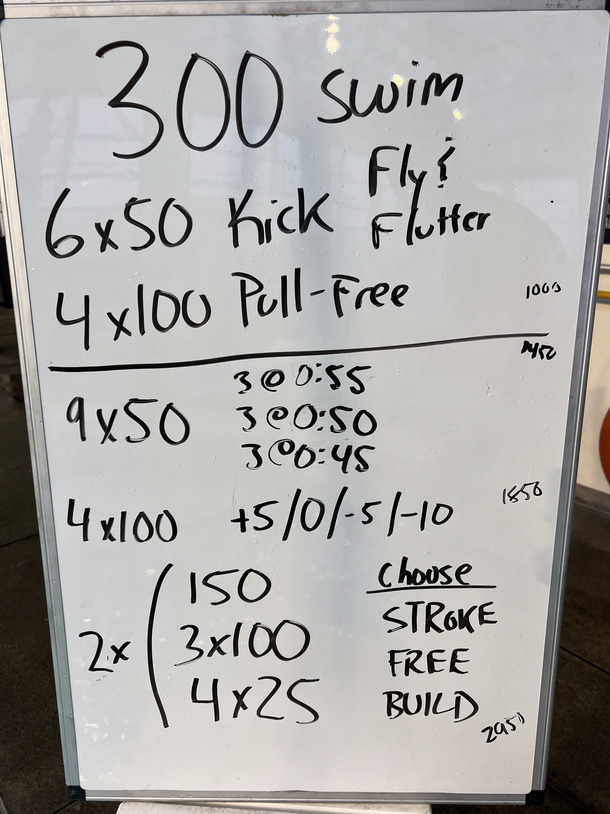 300 Swim
6x50 Kick Fly &
Flutter
4x100 Pull-Free 1000
1450
9x50 3@0:55
3@0:50
3@0:45
4x100 +5/0/-5/-10 1850
Choose
2x 150 STROKE
3x100 FREE
4x25 BUILD
2950